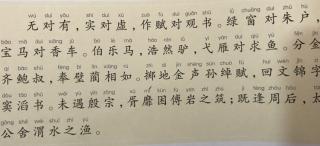 wú duì yǒu shí duì xū zuò fù duì guān shū lǜ chuāng duì zhū hù
无对有,实对虚,作赋对观书。绿窗对朱户,
bǎo mǎ duì xiāng chē bó lè mǎ hào rán lǘ yì yàn duì qiú yú fēn jīn
宝马对香车。伯乐马,浩然驴,弋雁对求鱼。分金
qí bào shū fèng bì lìn xiàng rú zhì dì jīn shēng sūn chuò fù huí wén jǐn zì
齐鲍叔,奉璧蔺相如。掷地金声孙绰赋,回文锦字
dòu tāo shū wèi yù yīn zōng xū mí kùn fù yán zhī zhù jì féng zhōu hòu tài
窦滔书。未遇殷宗,胥靡困傅岩之筑;既逢周后,太
gōng shě wèi shuǐ zhī yú
公舍渭水之渔。